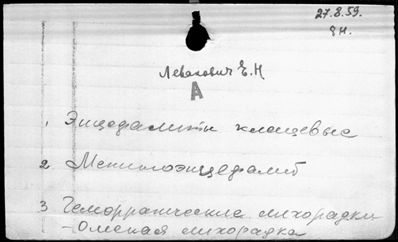 27.8.59.
Левкович Е.Н
А
1. Энцефалиты клещевые
2 Менингоэнцефалит
3 Геморрагические лихорадки
- Омская лихорадка